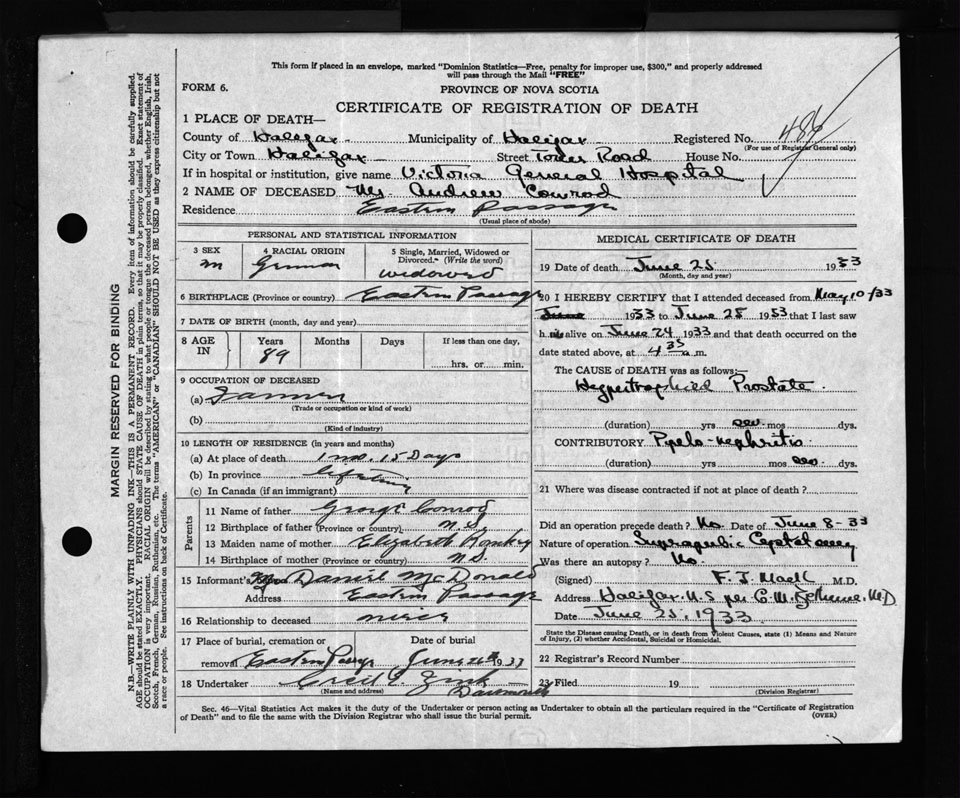 This form if placed in an envelope, marked "Dominion Statistics—Free, penalty for improper use, $300," and properly addressed
will pass through the Mail "FREE"
FORM 6.
PROVINCE OF NOVA SCOTIA
CERTIFICATE OF REGISTRATION OF DEATH
1 PLACE OF DEATH—
County of Halifax Municipality of Halifax Registered No. 486
(For use of Registrar General only)
City or Town Halifax Street Tower Road House No.
If in hospital or institution, give name Victoria General Hospital
2 NAME OF DECEASED Mr. Andrew Conrod
Residence Eastern Passage
(Usual place of abode)
PERSONAL AND STATISTICAL INFORMATION
3 SEX 4 RACIAL ORIGIN 5 Single, Married, Widowed or Divorced. (Write the word)
m German widowed
6 BIRTHPLACE (Province or country) Eastern Passage
7 DATE OF BIRTH (month, day and year)
8 AGE IN Years Months Days If less than one day,
89 hrs. or min.
9 OCCUPATION OF DECEASED
(a) Farmer
(Trade or occupation or kind of work)
(b)
(Kind of industry)
10 LENGTH OF RESIDENCE (in years and months)
(a) At place of death 1 mo. 15 Days
(b) In province Lifetime
(c) In Canada (if an immigrant)
Parents
11 Name of father George Conrod
12 Birthplace of father (Province or country) N.S
13 Maiden name of mother Elizabeth
14 Birthplace of mother (Province or country) N.S.
15 Informant's Daniel McDonald
Address Eastern Passage
16 Relationship to deceased niece
17 Place of burial, cremation or removal Date of burial
Eastern Passage June 1933
18 Undertaker Zink
(Name and address) Dartmouth
MEDICAL CERTIFICATE OF DEATH
19 Date of death June 25 1933
(Month, day and year)
20 I HEREBY CERTIFY that I attended deceased from May 10/33
June 1933 to June 25 1933 that I last saw
h im alive on June 24 1933 and that death occurred on the
date stated above, at 4 35 a.m.
The CAUSE OF DEATH was as follows:—
Hypertrophied Prostate
(duration) yrs mos dys.
CONTRIBUTORY Pyelo-nephritis
(duration) yrs mos dys.
21 Where was disease contracted if not at place of death?
Did an operation precede death? Date of June 8-33
Nature of operation Suprapubic Cystotomy
Was there an autopsy? No.
(Signed) F. J. M.D.
Address Halifax. N.S per C.M. M.D
Date June 25. 1933.
State the Disease causing Death, or in death from Violent Causes, state (1) Means and Nature
of Injury, (2) whether Accidental, Suicidal, or Homicidal.
22 Registrar's Record Number
23 Filed 19
(Division Registrar)
Sec. 46—Vital Statistics Act makes it the duty of the Undertaker or person acting as Undertaker to obtain all the particulars required in the "Certificate of Registration
of Death" and to file the same with the Division Registrar who shall issue the burial permit.
(OVER)
MARGIN RESERVED FOR BINDING
N.B.—WRITE PLAINLY WITH UNFADING INK—THIS IS A PERMANENT RECORD. Every item of information should be carefully supplied.
AGE should be stated EXACTLY. PHYSICIANS should STATE CAUSE OF DEATH in plain terms, so that it may be properly classified. Exact statement of
OCCUPATION is very important. RACIAL ORIGIN will be described by stating to what people or tongue the deceased person belonged, whether English, Irish,
Scotch, French, German, Russian, Ruthenian, etc. The terms "AMERICAN" or "CANADIAN" SHOULD NOT BE USED as they express citizenship but not
a race or people. See instructions on back of Certificate.